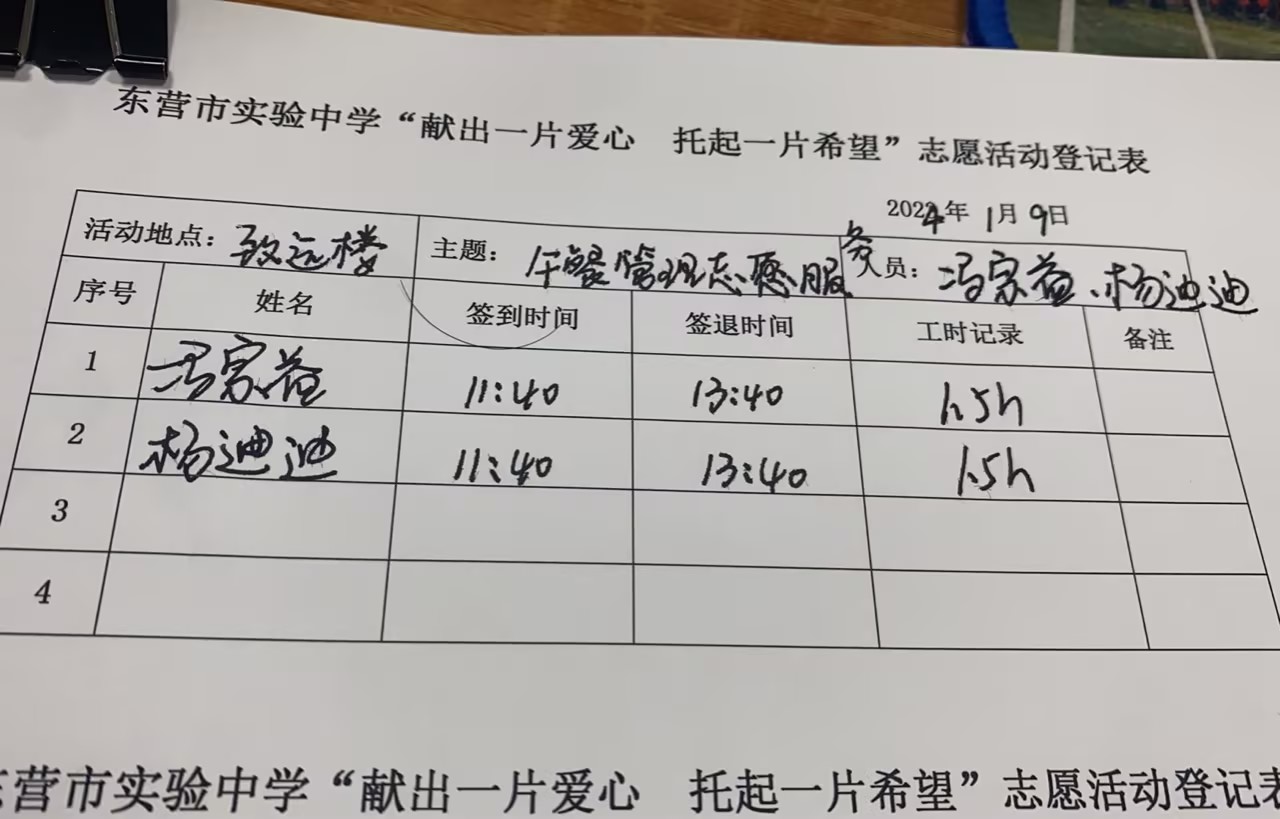 东营市实验中学“献出一片爱心 托起一片希望”志愿活动登记表
2024年 1月 9日
活动地点：致远楼 主题：午餐管理志愿服务 人员：冯家益、杨迪迪
序号 姓名 签到时间 签退时间 工时记录 备注
1 冯家益 11:40 13:40 1.5h
2 杨迪迪 11:40 13:40 1.5h
3
4
东营市实验中学“献出一片爱心 托起一片希望”志愿活动登记表